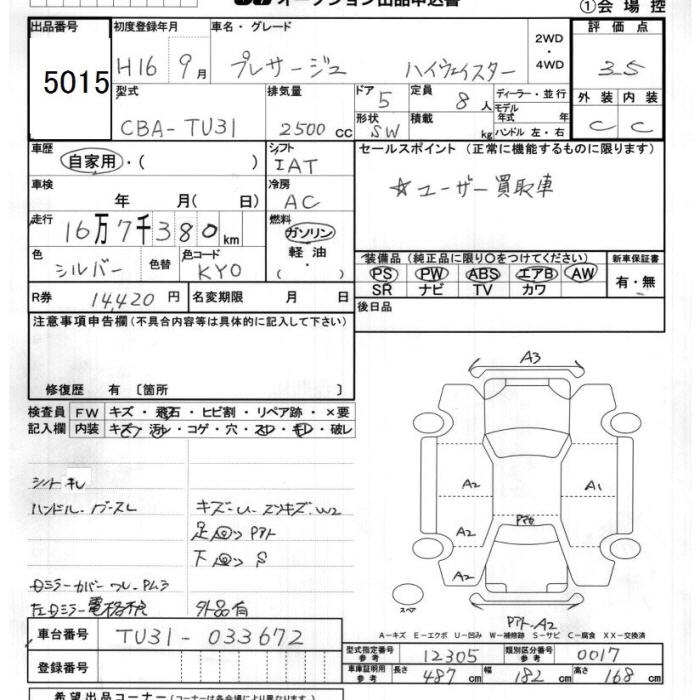 オークション出品申込書
①会場控
出品番号 初度登録年月 車名・グレード 2WD ・4WD 評価点
5015 H16 9月 プレサージュ ハイウェイスター 3.5
型式 排気量 ドア 定員 ディーラー・並行 外装 内装
CBA-TU31 2500cc 5 8人 モデル年式 年 C C
形状 SW 積載 kg ハンドル 左・右
車歴 シフト セールスポイント (正常に機能するものに限ります)
自家用・( ) IAT
車検 冷房 ☆ユーザー買取車
年 月( 日) AC
走行 燃料
16万7千380km ガソリン
軽油
・( )
色 色替 色コード 装備品 (純正品に限り○をつけてください) 新車保証書
シルバー KY0 PS PW ABS エアB AW 有・無
SR ナビ TV カワ
R券 14,420円 名変期限 月 日 後日品
注意事項申告欄 (不具合内容等は具体的に記入して下さい)
修復歴 有 [箇所 ]
検査員 FW キズ・飛石・ヒビ割・リペア跡・×要
記入欄 内装 キズ・汚レ・コゲ・穴・スレ・キレ・破レ
A3
A2 A1
A2
A2
スペア
シート 札
ハンドル
キズ-U- W2
足回り
下回り S
外品有
A-キズ E-エクボ U-凹み W-補修跡 S-サビ C-腐食 XX-交換済
車台番号 TU31-033672
型式指定番号 参考 12305 類別区分番号 参考 0017
登録番号
車庫証明用 参考 長さ 487cm 幅 182cm 高さ 168cm
希望出品コーナー (コーナーは各会場により異なります)